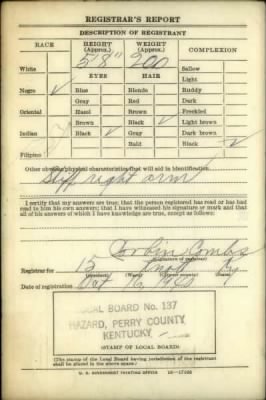 REGISTRAR'S REPORT
DESCRIPTION OF REGISTRANT
RACE HEIGHT (Approx.) WEIGHT (Approx.) COMPLEXION
5'8" 200
White Sallow
EYES HAIR Light
Negro ✓ Blue Blonde Ruddy
Gray Red Dark
Oriental Hazel Brown Freckled
Brown Black ✓ Light brown
Indian Black ✓ Gray Dark brown
Bald Black ✓
Filipino
Other obvious physical characteristics that will aid in identification
Stiff right arm
I certify that my answers are true; that the person registered has read or has had
read to him his own answers; that I have witnessed his signature or mark and that
all of his answers of which I have knowledge are true, except as follows:
Corbin Combs
(Signature of registrar)
Registrar for 15 Knott Ky
(Precinct) (Ward) (City or county) (State)
Date of registration Oct 16, 1940
LOCAL BOARD No. 137
HAZARD, PERRY COUNTY
KENTUCKY
(STAMP OF LOCAL BOARD)
(The stamp of the Local Board having jurisdiction of the registrant
shall be placed in the above space.)
U. S. GOVERNMENT PRINTING OFFICE